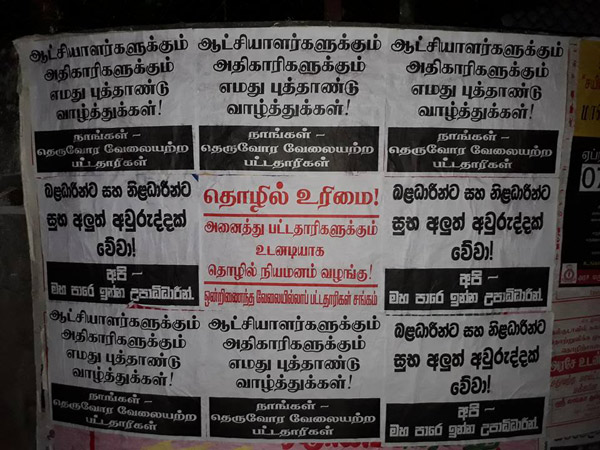 ஆட்சியாளர்களுக்கும்
அதிகாரிகளுக்கும்
எமது புத்தாண்டு
வாழ்த்துக்கள்!
நாங்கள் –
தெருவோர வேலையற்ற
பட்டதாரிகள்
ஆட்சியாளர்களுக்கும்
அதிகாரிகளுக்கும்
எமது புத்தாண்டு
வாழ்த்துக்கள்!
நாங்கள் –
தெருவோர வேலையற்ற
பட்டதாரிகள்
ஆட்சியாளர்களுக்கும்
அதிகாரிகளுக்கும்
எமது புத்தாண்டு
வாழ்த்துக்கள்!
நாங்கள் –
தெருவோர வேலையற்ற
பட்டதாரிகள்
බළධාරීන්ට සහ නිළධාරීන්ට
සුභ අලුත් අවුරුද්දක්
වේවා!
අපි –
මහ පාරේ ඉන්න උපාධිධාරීන්.
தொழில் உரிமை!
அனைத்து பட்டதாரிகளுக்கும்
உடனடியாக
தொழில் நியமனம் வழங்கு!
ஒன்றிணைந்த வேலையில்லாப் பட்டதாரிகள் சங்கம்
බළධාරීන්ට සහ නිළධාරීන්ට
සුභ අලුත් අවුරුද්දක්
වේවා!
අපි –
මහ පාරේ ඉන්න උපාධිධාරීන්.
ஆட்சியாளர்களுக்கும்
அதிகாரிகளுக்கும்
எமது புத்தாண்டு
வாழ்த்துக்கள்!
நாங்கள் –
தெருவோர வேலையற்ற
பட்டதாரிகள்
ஆட்சியாளர்களுக்கும்
அதிகாரிகளுக்கும்
எமது புத்தாண்டு
வாழ்த்துக்கள்!
நாங்கள் –
தெருவோர வேலையற்ற
பட்டதாரிகள்
බළධාරීන්ට සහ නිළධාරීන්ට
සුභ අලුත් අවුරුද්දක්
වේවා!
අපි –
මහ පාරේ ඉන්න උපාධිධාරීන්.